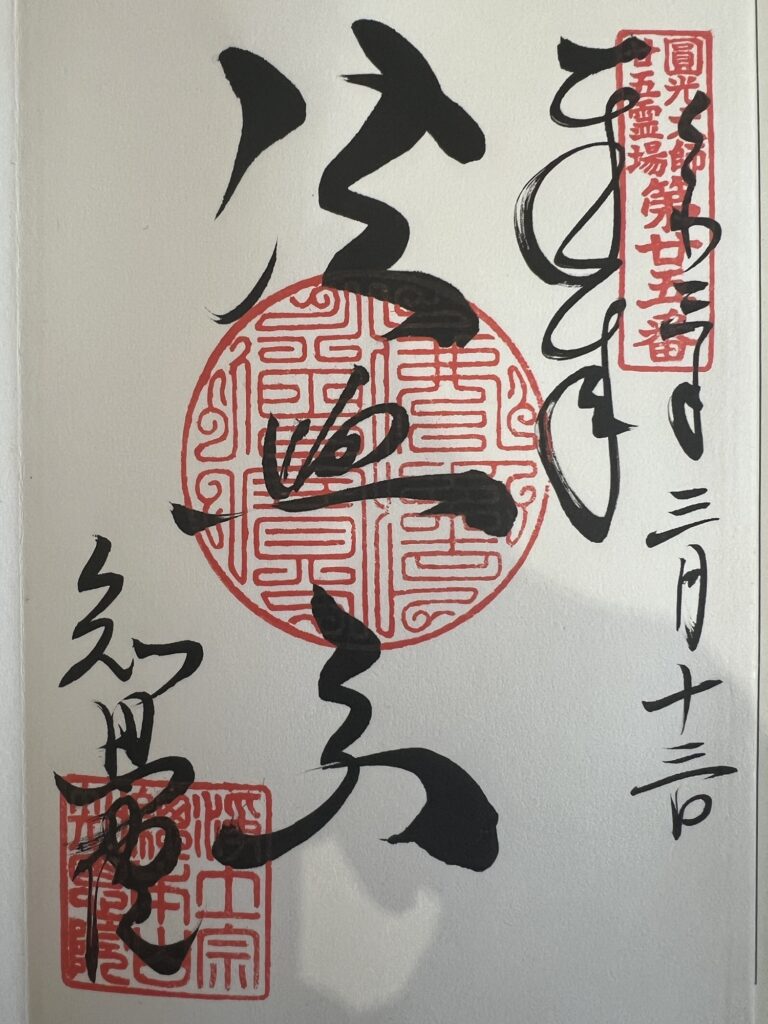 圓光大師
廿五霊場
第廿五番
令和三年三月十三日
奉拝
法然上人
知恩院
浄土宗
總本山
知恩院